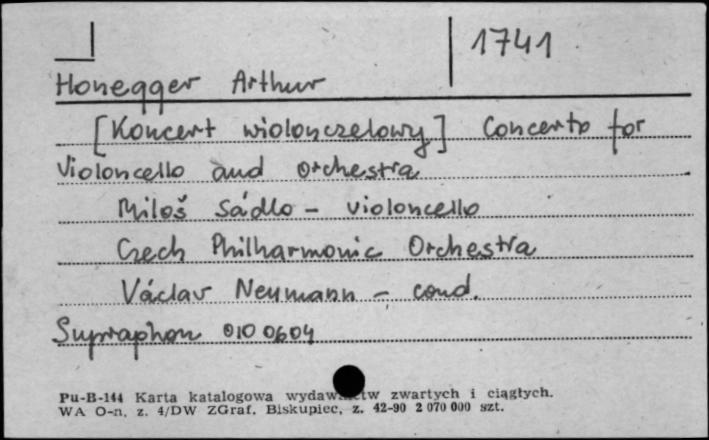 1741
Honegger Arthur
[Koncert wiolonczelowy] Concerto for
Violoncello and Orchestra
Miloš Sádlo - violoncello
Czech Philharmonic Orchestra
Václav Neumann - cond.
Supraphon 010 0604
Pu-B-144 Karta katalogowa wydawnictw zwartych i ciągłych.
WA O-n, z. 4/DW ZGraf. Biskupiec, z. 42-90 2 070 000 szt.